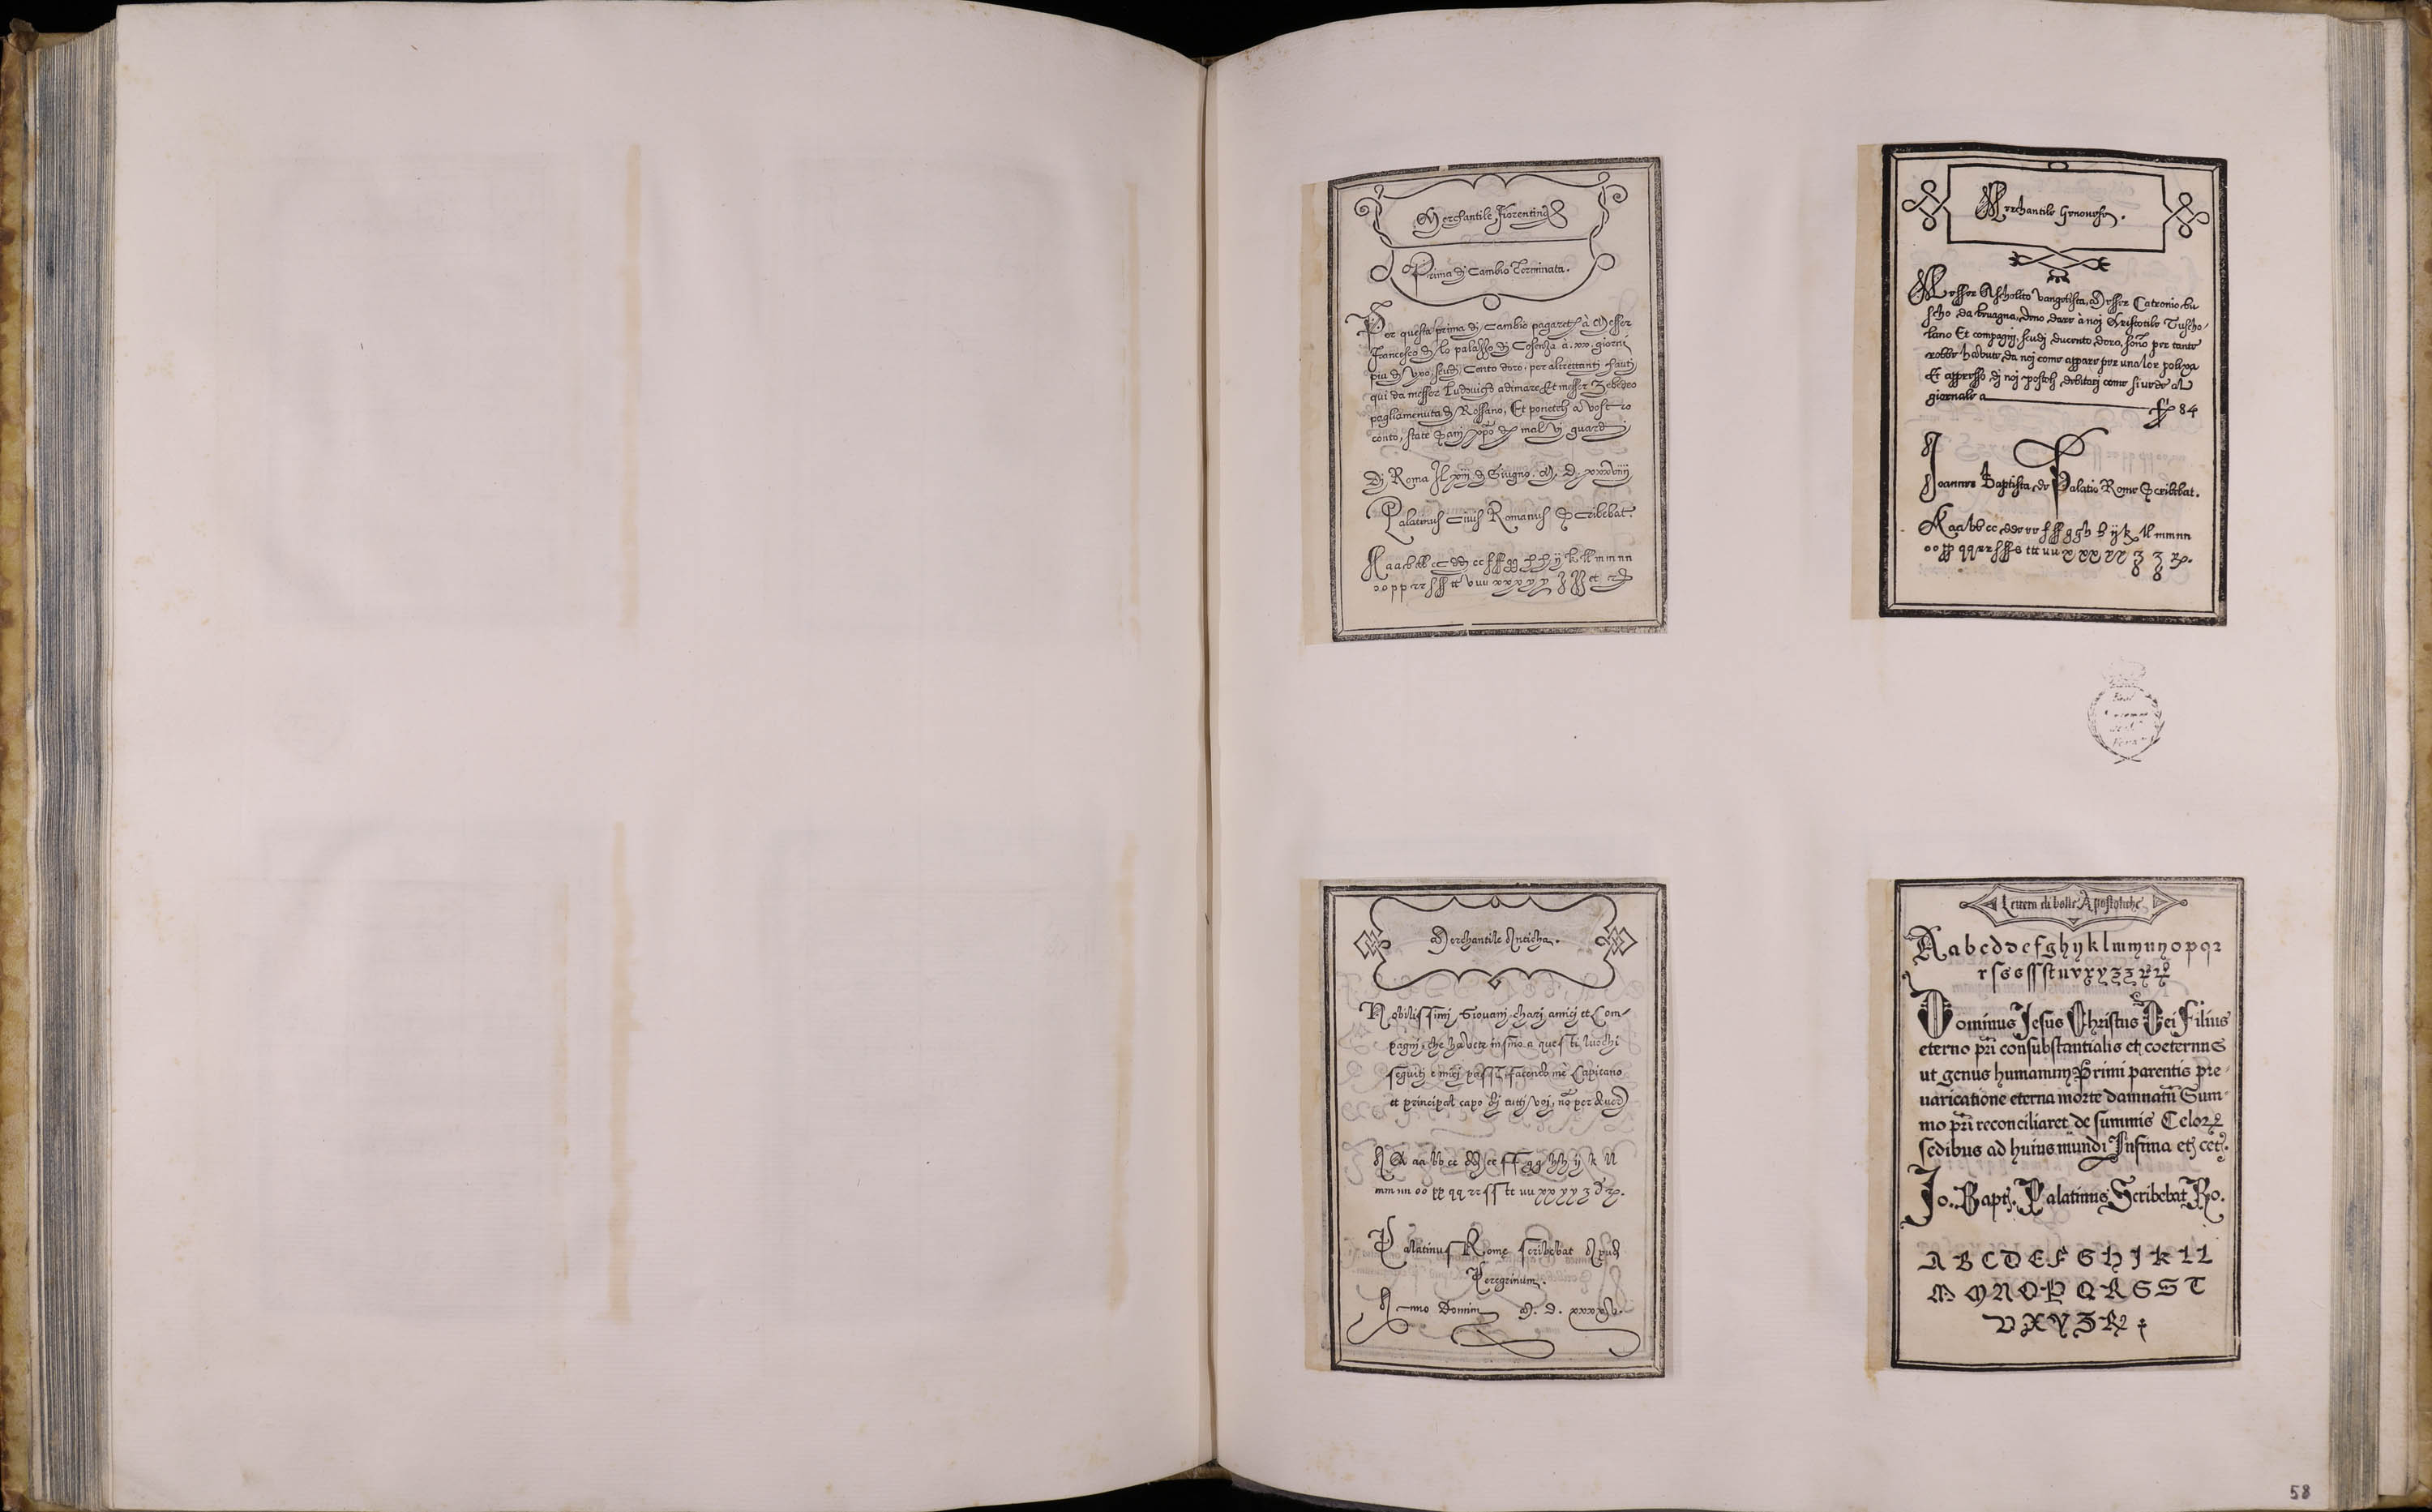 Merchantile Fiorentina
Prima di Cambio Terminata.
Per questa prima di Cambio pagarete à Messer
Francesco di lo palazzo di Cosenza à .xx. giorni
pia di vxo, scudi Cento doro, per altrettanti hauti
qui da messer Ludouico adimare, Et messer Zebedeo
pagliamenuta di Rossano, Et ponetelj a vostro
conto, state Sani xpo di mal vi guardi
Dj Roma Il xiij di Giugno. M. D. xxxviiij
Palatinus Ciuis Romanus Scribebat.
A aa bb cc dd ee ff gg hh ij k ll mm nn
oo pp rr ss tt v uu xx x y y z
Merchantile Genouese.
Messer Ascholito vangelista, Messer Catronio bu
scho da beuagna, deno dare à noj Aristotile Tuscho-
lano Et compagnj, scudj ducento doro, sono per tante
robbe habute da noj come appare per una lor poliza
Et appresso dj noj postoli debitorj come si vede al
giornale a 84
Joannes Baptista de Palatio Rome Scribebat.
A aa bb cc dd ee ff gg h h ij k ll mm nn
oo pp qq rr ss s ttt uu x xx yy z z
Merchantile Anticha.
Nobilissimj Giouanj charj amicj et Com-
pagnj, che havete insino a questi luochi
seguitj e miej passi, facendo me Capitano
et principal capo dj tuttj voj, no per dever
A A aa bb cc dd ee ff gg hh ij k ll
mm nn oo pp qq rr ss tt uu xx yy z
Palatinus Rome scribebat Apud
Peregrinum.
Anno Domini M. D. xxxx
Lettera di bolle Apostoliche
A a b c d d e f g h y k l m m n n o p q r
r s s s ss st u v x y z z
Dominus Jesus Christus Dei Filius
eterno pri consubstantialis et coeternus
ut genus humanum Primi parentis pre-
uaricatione eterna morte damnatu Sum-
mo pri reconciliaret de summis Celoꝝ
sedibus ad huius mundi Infima et cet.
Jo. Bapt. Palatinus Scribebat Ro.
A B C D E F G H J K L L
M M N O P Q R S S T
V X Y Z
58